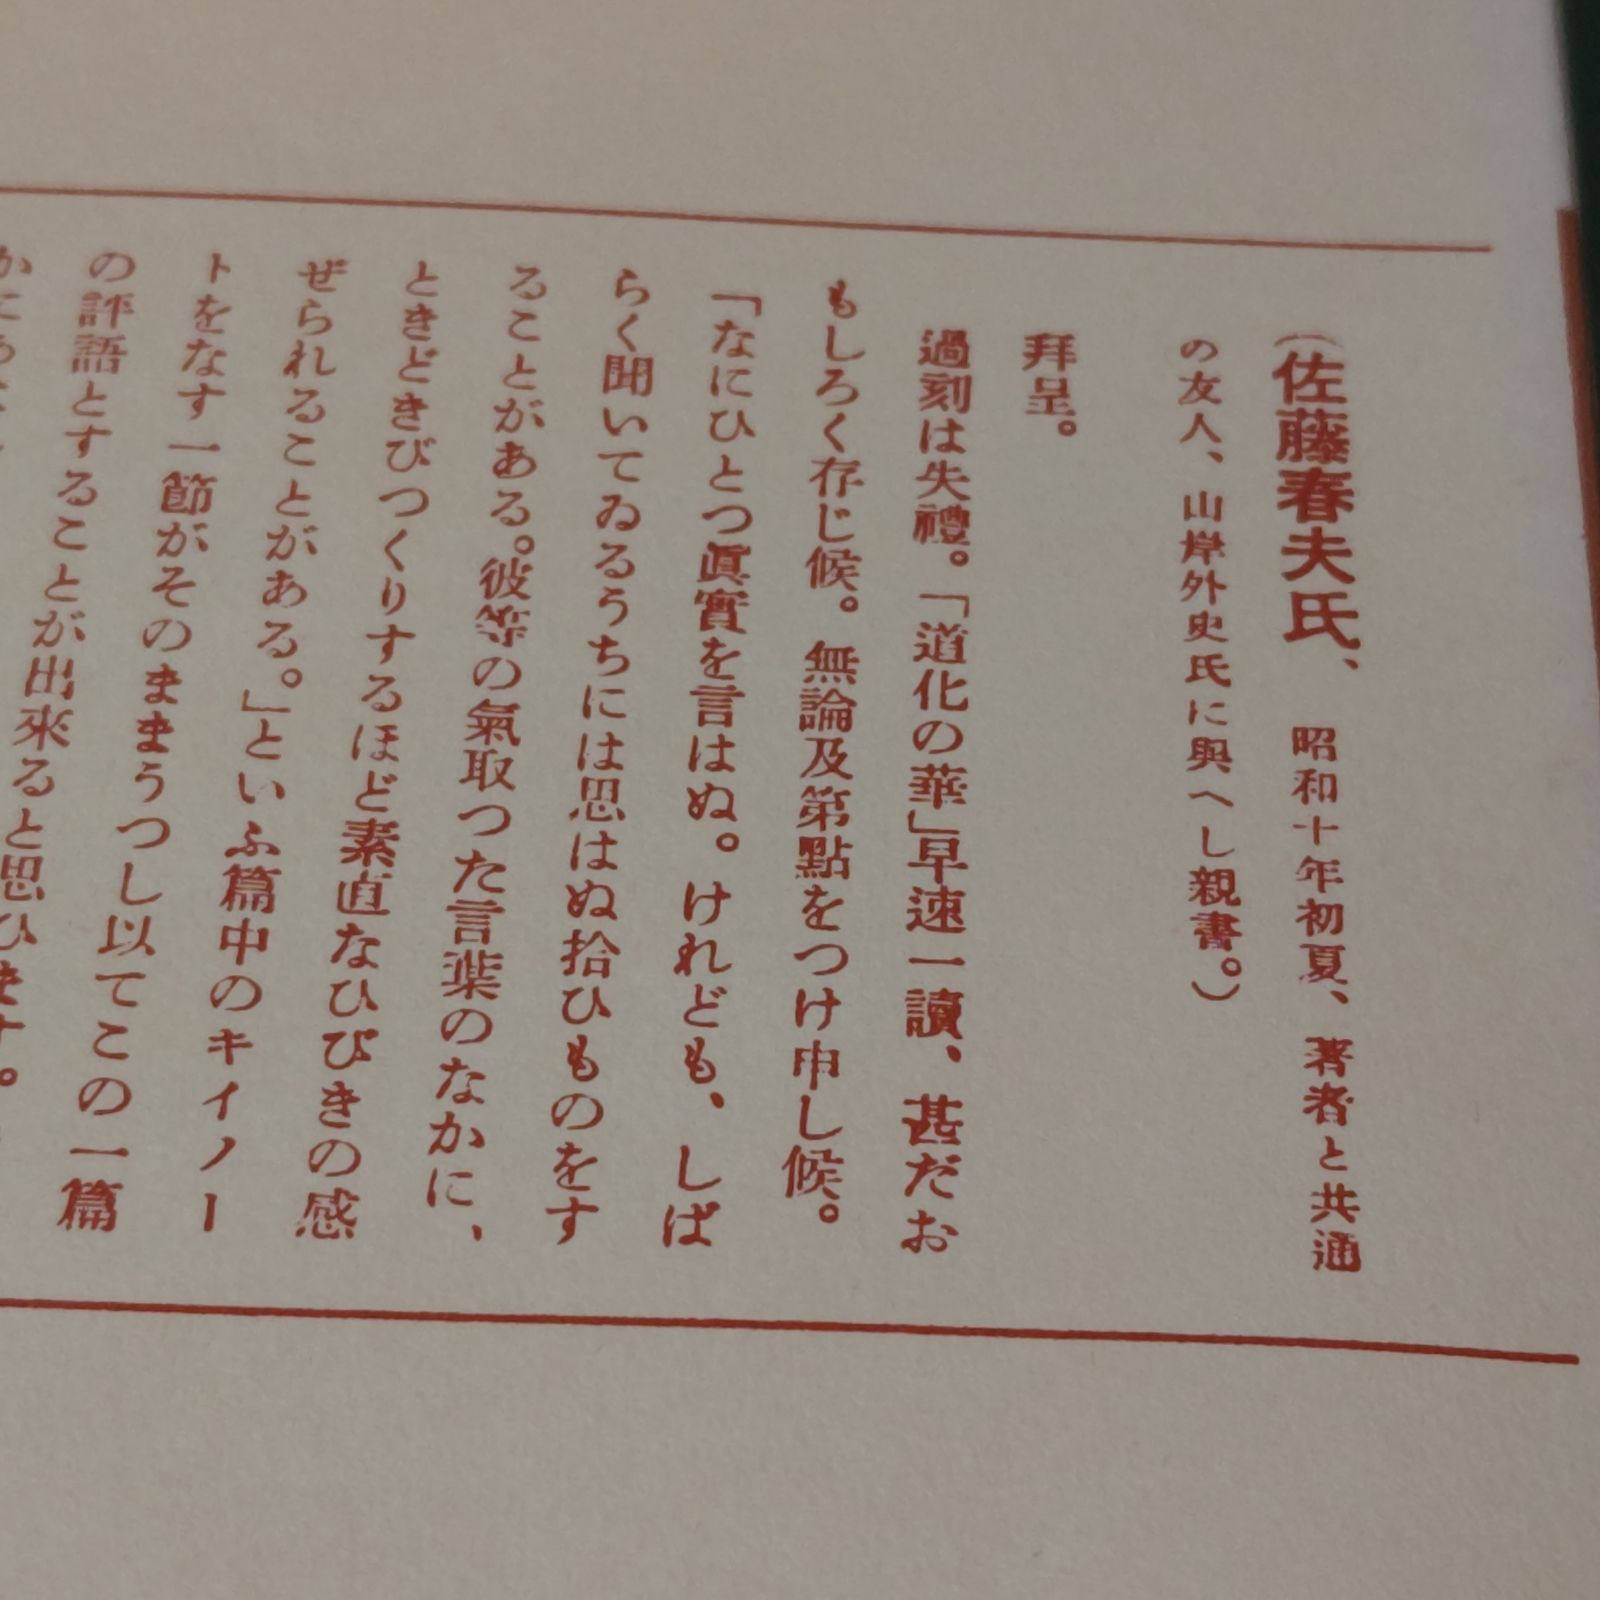 （佐藤春夫氏、　昭和十年初夏、著者と共通
の友人、山岸外史氏に與へし親書。）
拜呈。
過刻は失禮。「道化の華」早速一讀、甚だお
もしろく存じ候。無論及第點をつけ申し候。
「なにひとつ眞實を言はぬ。けれども、しば
らく聞いてゐるうちには思はぬ拾ひものをす
ることがある。彼等の氣取つた言葉のなかに、
ときどきびつくりするほど素直なひびきの感
ぜられることがある。」といふ篇中のキイノー
トをなす一節がそのままうつし以てこの一篇
の評語とすることが出來ると思ひます。